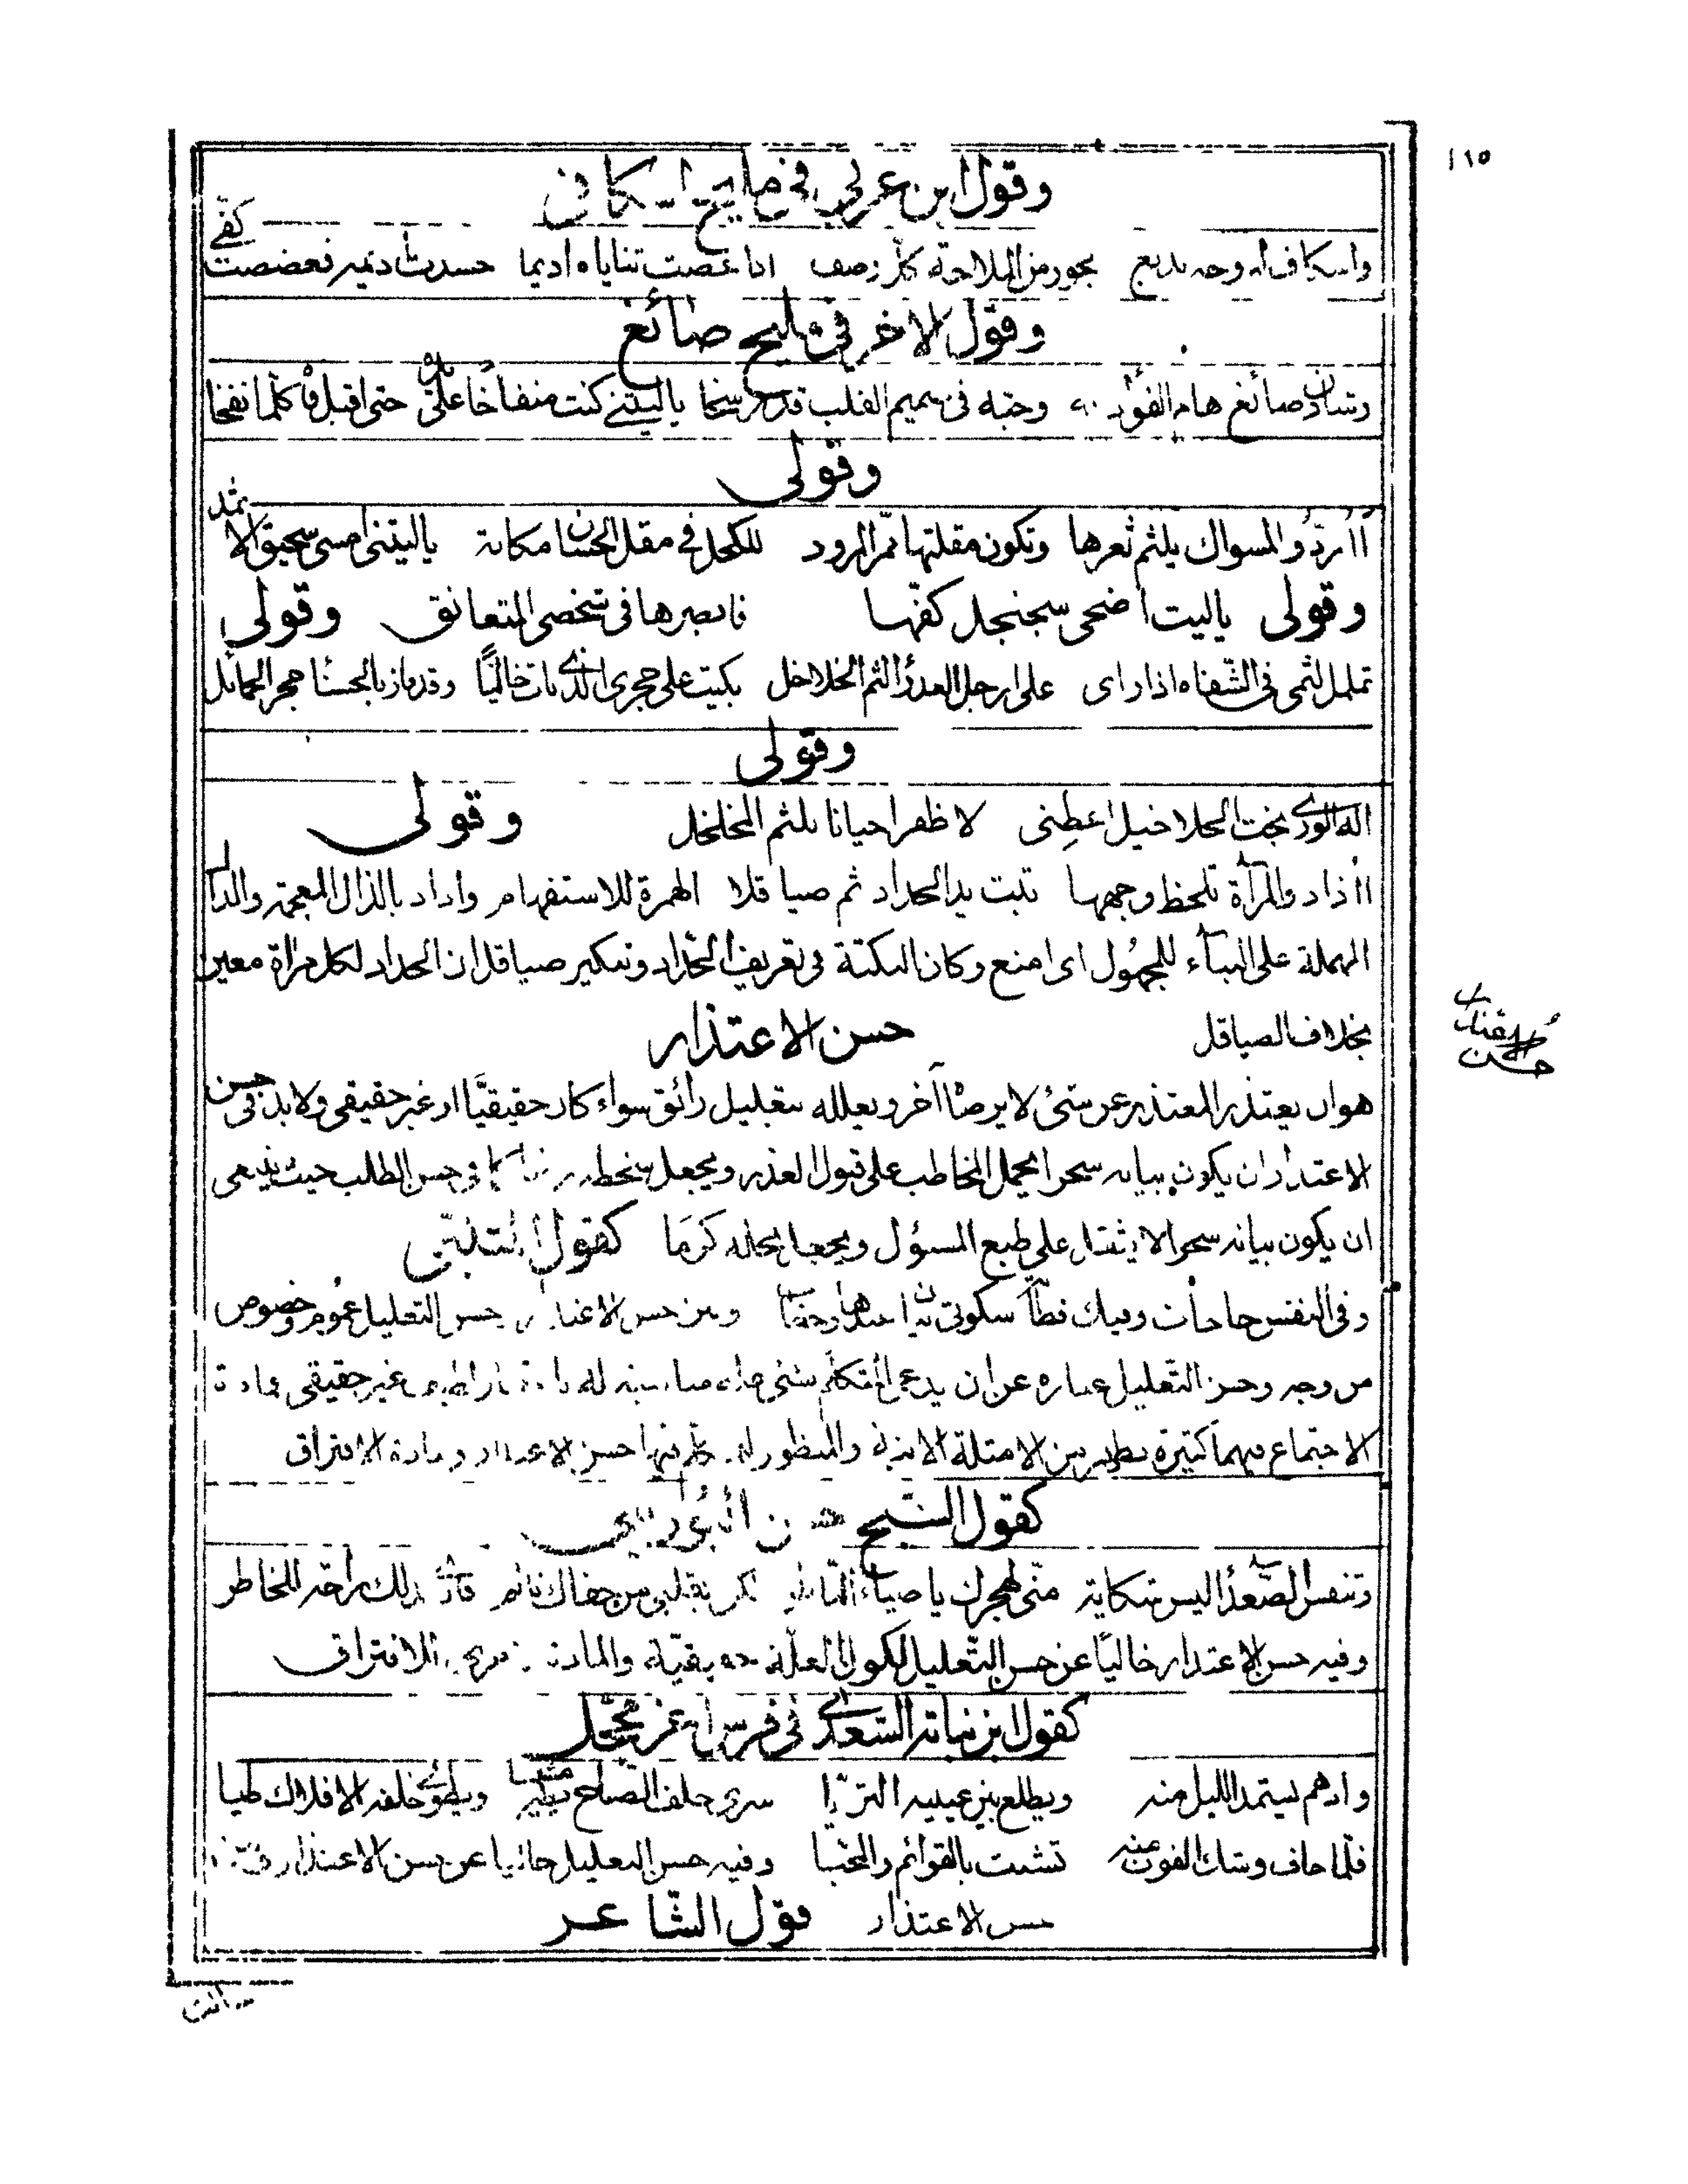 ١١٥
وقول ابن عربي في مليح اسكافي
واسكاف له وجه بديع يحوز من الملاحة كل وصف اذا عضت ثناياه اديما حسدت اديمه فعضضت كفي
وقول الاخر في مليح صائغ
وشادن صائغ هام الفؤاد به وحبه في صميم القلب قد رسخا يا ليتني كنت منفاخا على فمه حتى اقبل فاه كلما نفخا
وقولي
أأرد والمسواك يلثم ثغرها وتكون مقلتها ممر المرود للكحل في مقل الحسان مكانة يا ليتني امسى سحيق الاثمد
وقولي يا ليت أضحى سجنجل كفها فابصرها في شخصي المتعانق وقولي
تململ لثمي في الشفاه اذا راى على ارجل العذراء لثم الخلاخل بكيت على حجري الذي بات خاليا وقد فاز بالحسنا حجر الحمائل
وقولي
اله الورى بخت الخلاخيل اعطني لاظفر احيانا بلثم المخلخل وقولي
أأذاد والمرآة تلحظ وجهها تبت يد الحداد ثم صياقلا الهمزة للاستفهام واذاد بالذال المعجمة والدال
المهملة على البناء للمجهول اى امنع وكان النكتة في تعريف الحداد وتنكير صياقل ان الحداد لكل مراة معين
بخلاف الصياقل حسن الاعتذار
هو ان يعتذر المعتذر عن شئ لا يرضاه آخر ويعلله بتعليل رائق سواء كان حقيقيا او غير حقيقي ولا بد في حسن
الاعتذار ان يكون بيانه سحرا يحمل المخاطب على قبول العذر ويجعل سخطه رضا كما في حسن الطلب حيث ينبغي
ان يكون بيانه سحرا لا يثقل على طبع المسؤل ويجعل بخله كرما كقول المتنبي
وفي النفس حاجات وفيك فطانة سكوتي بيان عندها وخطاب وبين حسن الاعتذار وحسن التعليل عموم وخصوص
من وجه وحسن التعليل عبارة عن ان يدعي المتكلم لشئ علة مناسبة له باعتبار لطيف غير حقيقي ومادة
الاجتماع فيهما كثيرة يظهر من الامثلة الاتية والمنظور له كلها حسن الاعتذار ومادة الافتراق
كقول الشيخ حسن البوريني
وتنفس الصعداء ليس شكاية مني لهجرك يا ضياء الناظر لكن بقلبي من جفاك فأن ذلك راحة للخاطر
وفيه حسن الاعتذار خاليا عن حسن التعليل لكون العلة حقيقية والمادة للافتراق
كقول ابن نباتة السعدي في فرس اغر محجل
وادهم يستمد الليل منه ويطلع بين عينيه الثريا سرى خلف الصباح يطير مشيا ويطوي خلفه الافلاك طيا
فلما خاف وشك الفوت منه تشبث بالقوائم والمحيا وفيه حسن التعليل خاليا عن حسن الاعتذار
حسن الاعتذار قول الشاعر